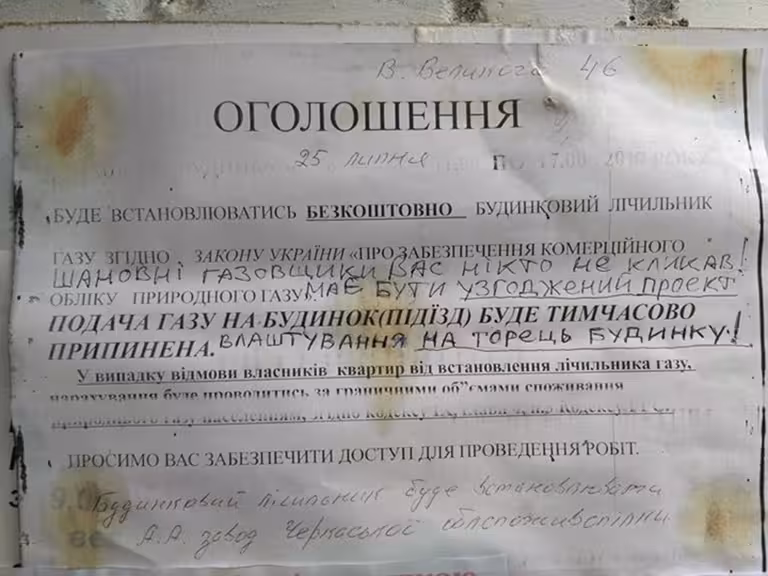 В. Великого 46
ОГОЛОШЕННЯ
25 липня ПО 17.00
БУДЕ ВСТАНОВЛЮВАТИСЬ БЕЗКОШТОВНО БУДИНКОВИЙ ЛІЧИЛЬНИК
ГАЗУ ЗГІДНО ЗАКОНУ УКРАЇНИ «ПРО ЗАБЕЗПЕЧЕННЯ КОМЕРЦІЙНОГО
ШАНОВНІ ГАЗОВЩИКИ ВАС НІХТО НЕ КЛИКАВ!
ОБЛІКУ ПРИРОДНОГО ГАЗУ МАЄ БУТИ УЗГОДЖЕНИЙ ПРОЕКТ
ПОДАЧА ГАЗУ НА БУДИНОК(ПІДЇЗД) БУДЕ ТИМЧАСОВО
ПРИПИНЕНА. ВЛАШТУВАННЯ НА ТОРЕЦЬ БУДИНКУ!
У випадку відмови власників квартир від встановлення лічильника газу,
нарахування буде проводитись за граничними об"ємами споживання
природного газу населенням, згідно кодексу
ПРОСИМО ВАС ЗАБЕЗПЕЧИТИ ДОСТУП ДЛЯ ПРОВЕДЕННЯ РОБІТ.
Будинковий лічильник буде встановлювати
А.А. завод Черкаської облспоживспілки